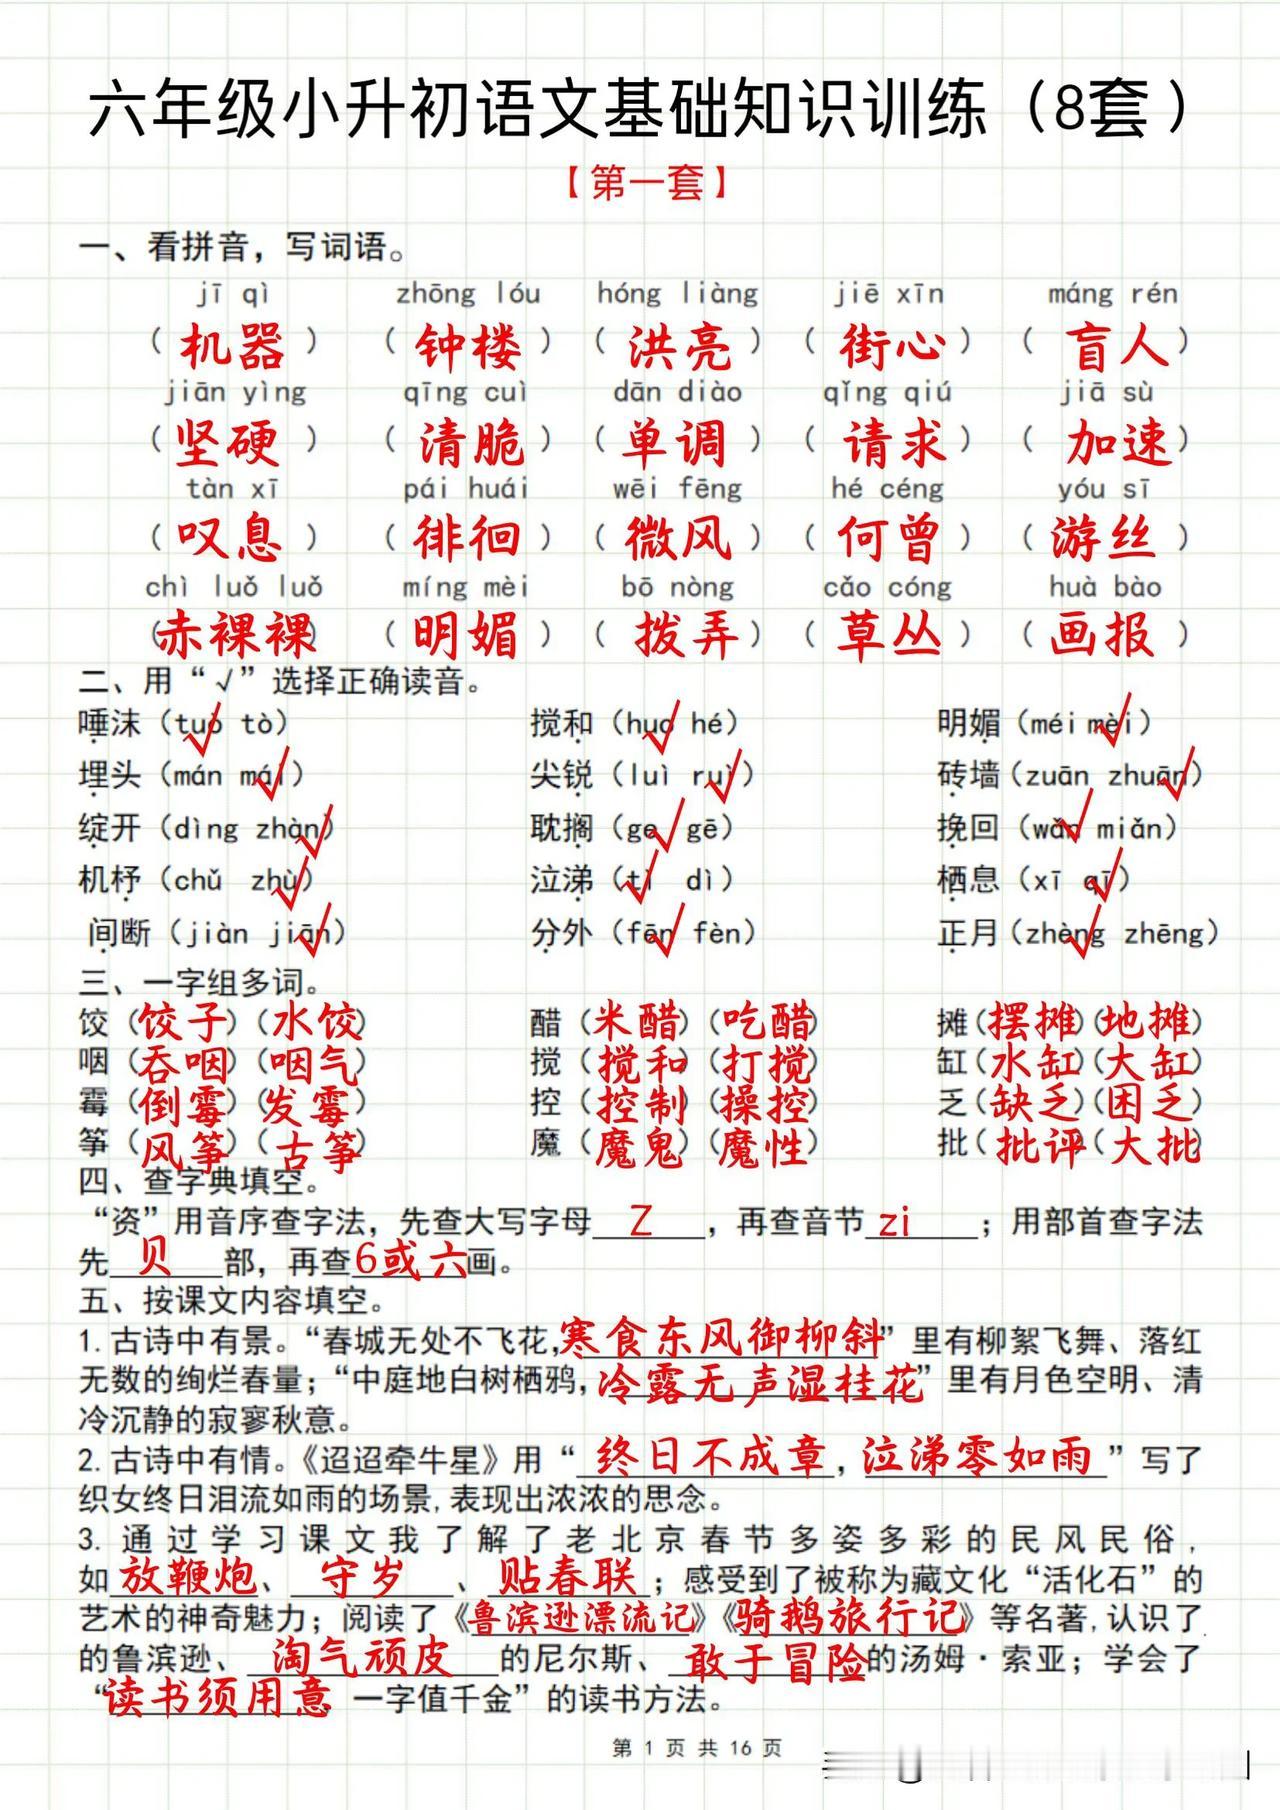 六年级小升初语文基础知识训练（8套）
【第一套】
一、看拼音，写词语。
jī qì zhōng lóu hóng liàng jiē xīn máng rén
（机器）（钟楼）（洪亮）（街心）（盲人）
jiān yìng qīng cuì dān diào qǐng qiú jiā sù
（坚硬）（清脆）（单调）（请求）（加速）
tàn xī pái huái wēi fēng hé céng yóu sī
（叹息）（徘徊）（微风）（何曾）（游丝）
chì luǒ luǒ míng mèi bō nòng cǎo cóng huà bào
（赤裸裸）（明媚）（拨弄）（草丛）（画报）
二、用“√”选择正确读音。
唾沫（tuò tò） 搅和（huo hé） 明媚（méi mèi）
埋头（mán mái） 尖锐（luì ruì） 砖墙（zuān zhuān）
绽开（dìng zhàn） 耽搁（ge gē） 挽回（wǎn miǎn）
机杼（chǔ zhù） 泣涕（tì dì） 栖息（xī qī）
间断（jiàn jiān） 分外（fēn fèn） 正月（zhèng zhēng）
三、一字组多词。
饺（饺子）（水饺） 醋（米醋）（吃醋） 摊（摆摊）（地摊）
咽（吞咽）（咽气） 搅（搅和）（打搅） 缸（水缸）（大缸）
霉（倒霉）（发霉） 控（控制）（操控） 乏（缺乏）（困乏）
筝（风筝）（古筝） 魔（魔鬼）（魔性） 批（批评）（大批）
四、查字典填空。
“资”用音序查字法，先查大写字母 Z ，再查音节 zi ；用部首查字法
先 贝 部，再查6或六画。
五、按课文内容填空。
1.古诗中有景。“春城无处不飞花，寒食东风御柳斜”里有柳絮飞舞、落红
无数的绚烂春量；“中庭地白树栖鸦，冷露无声湿桂花”里有月色空明、清
冷沉静的寂寥秋意。
2.古诗中有情。《迢迢牵牛星》用“终日不成章，泣涕零如雨”写了
织女终日泪流如雨的场景,表现出浓浓的思念。
3.通过学习课文我了解了老北京春节多姿多彩的民风民俗，
如放鞭炮、守岁、贴春联；感受到了被称为藏文化“活化石”的
艺术的神奇魅力；阅读了《鲁滨逊漂流记》《骑鹅旅行记》等名著,认识了
的鲁滨逊、淘气顽皮的尼尔斯、敢于冒险的汤姆·索亚；学会了
“读书须用意 一字值千金”的读书方法。
第 1 页 共 16 页